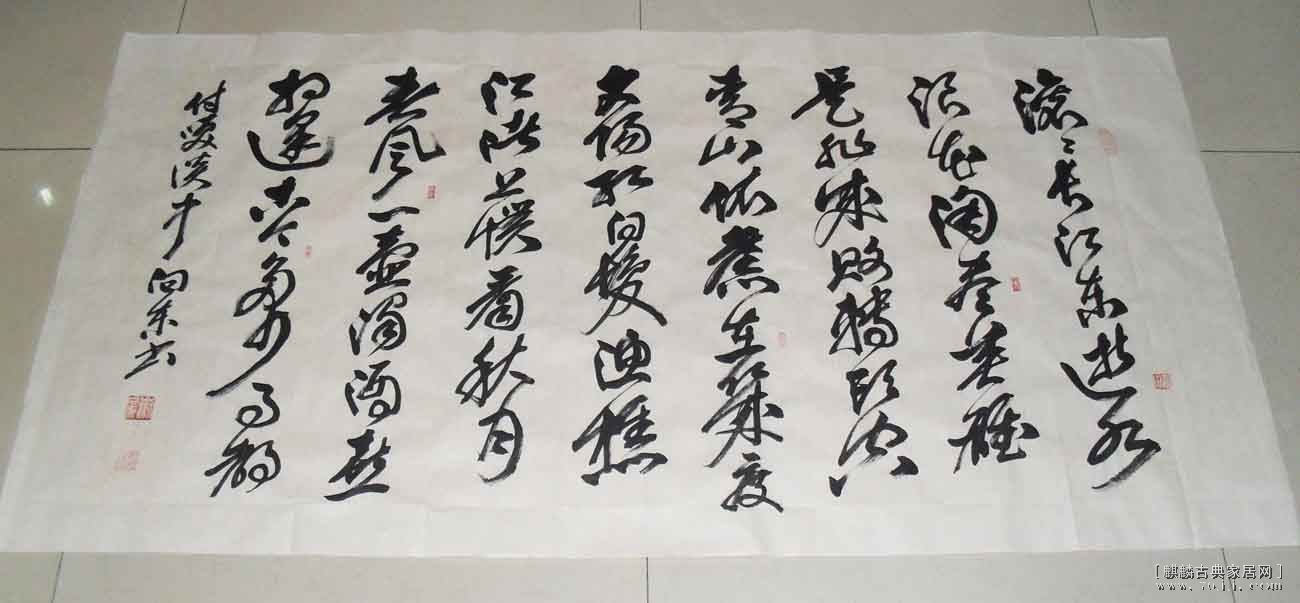 滚〻长江东逝水
浪花淘尽英雄
是非成败转头空
青山依舊在幾度
夕阳红白髮渔樵
江渚上惯看秋月
春风一壶浊酒喜
相逢古今多少事都
付笑谈中 向东书
[麒麟古典家居网]